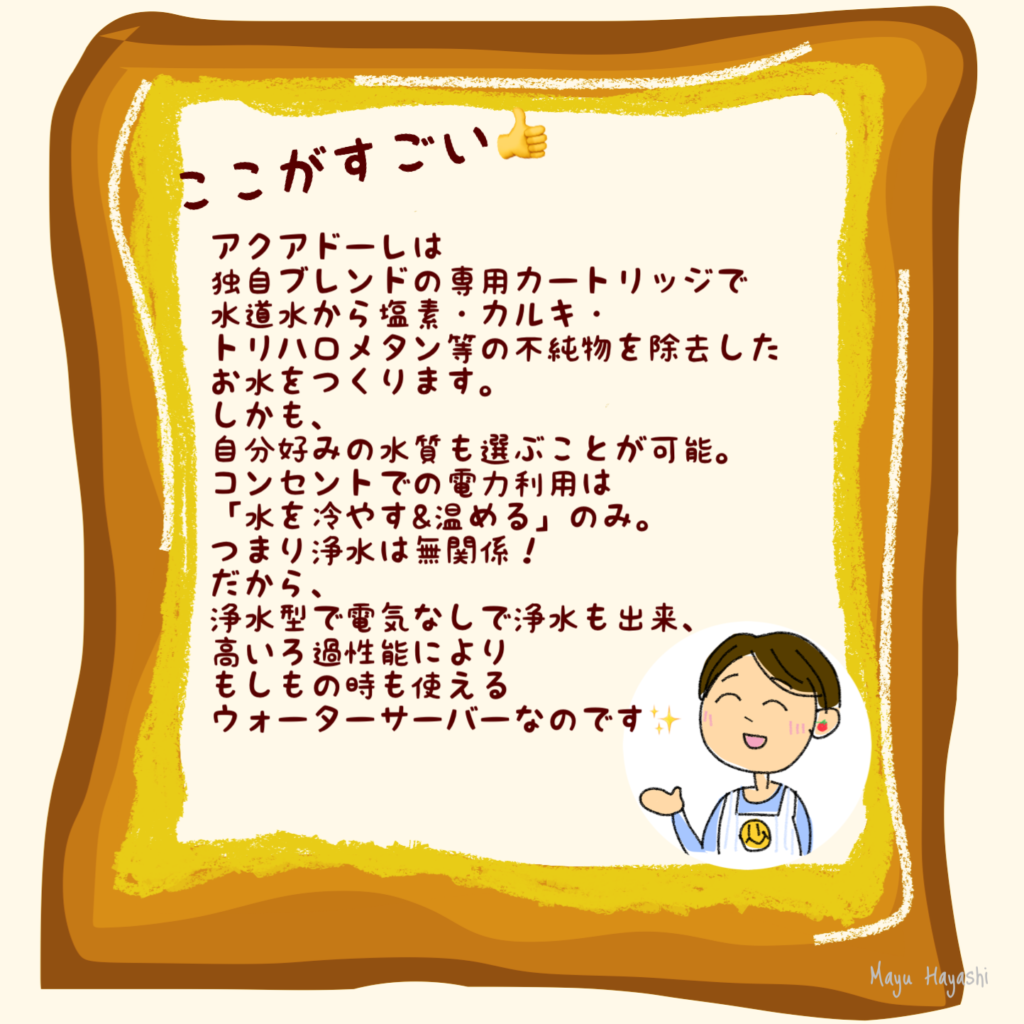 ここがすごい👍
アクアドーレは
独自ブレンドの専用カートリッジで
水道水から塩素・カルキ・
トリハロメタン等の不純物を除去した
お水をつくります。
しかも、
自分好みの水質も選ぶことが可能。
コンセントでの電力利用は
「水を冷やす&温める」のみ。
つまり浄水は無関係！
だから、
浄水型で電気なしで浄水も出来、
高いろ過性能により
もしもの時も使える
ウォーターサーバーなのです✨
Mayu Hayashi